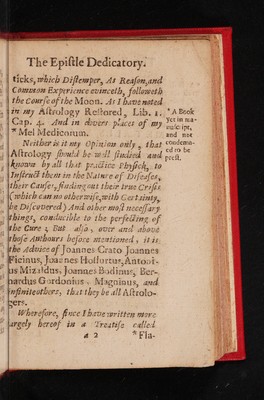 The Epistle Dedicatory.
ticks, which Distemper, As Reason, and
Common Experience evinceth, followeth
the Course of the Moon. As I have noted
in my Astrology Restored, Lib. 1.
Cap. 4. And in divers places of my
* Mel Medicorum.
* A Book
yet in ma-
nuscript,
and not
condemn-
ed to be
prest.
Neither is it my Opinion only, that
Astrology should be well studied and
known by all that practice Physick, to
Instruct them in the Nature of Diseases,
their Causes, finding out their true Crisis
(which can no otherwise, with Certainty,
be Discovered) And other most necessary
things, conducible to the perfecting of
the Cure; But also, over and above
those Authours before mentioned, it is
the Advice of Joannes Crato Joannes
Ficinus, Joannes Hasfurtus, Antoni-
us Mizaldus, Joannes Bodinus, Ber-
nardus Gordonius, Magninus, and
infinite others, that they be all Astrolo-
gers.
Wherefore, since I have written more
largely hereof in a Treatise called
a 2 * Fla-